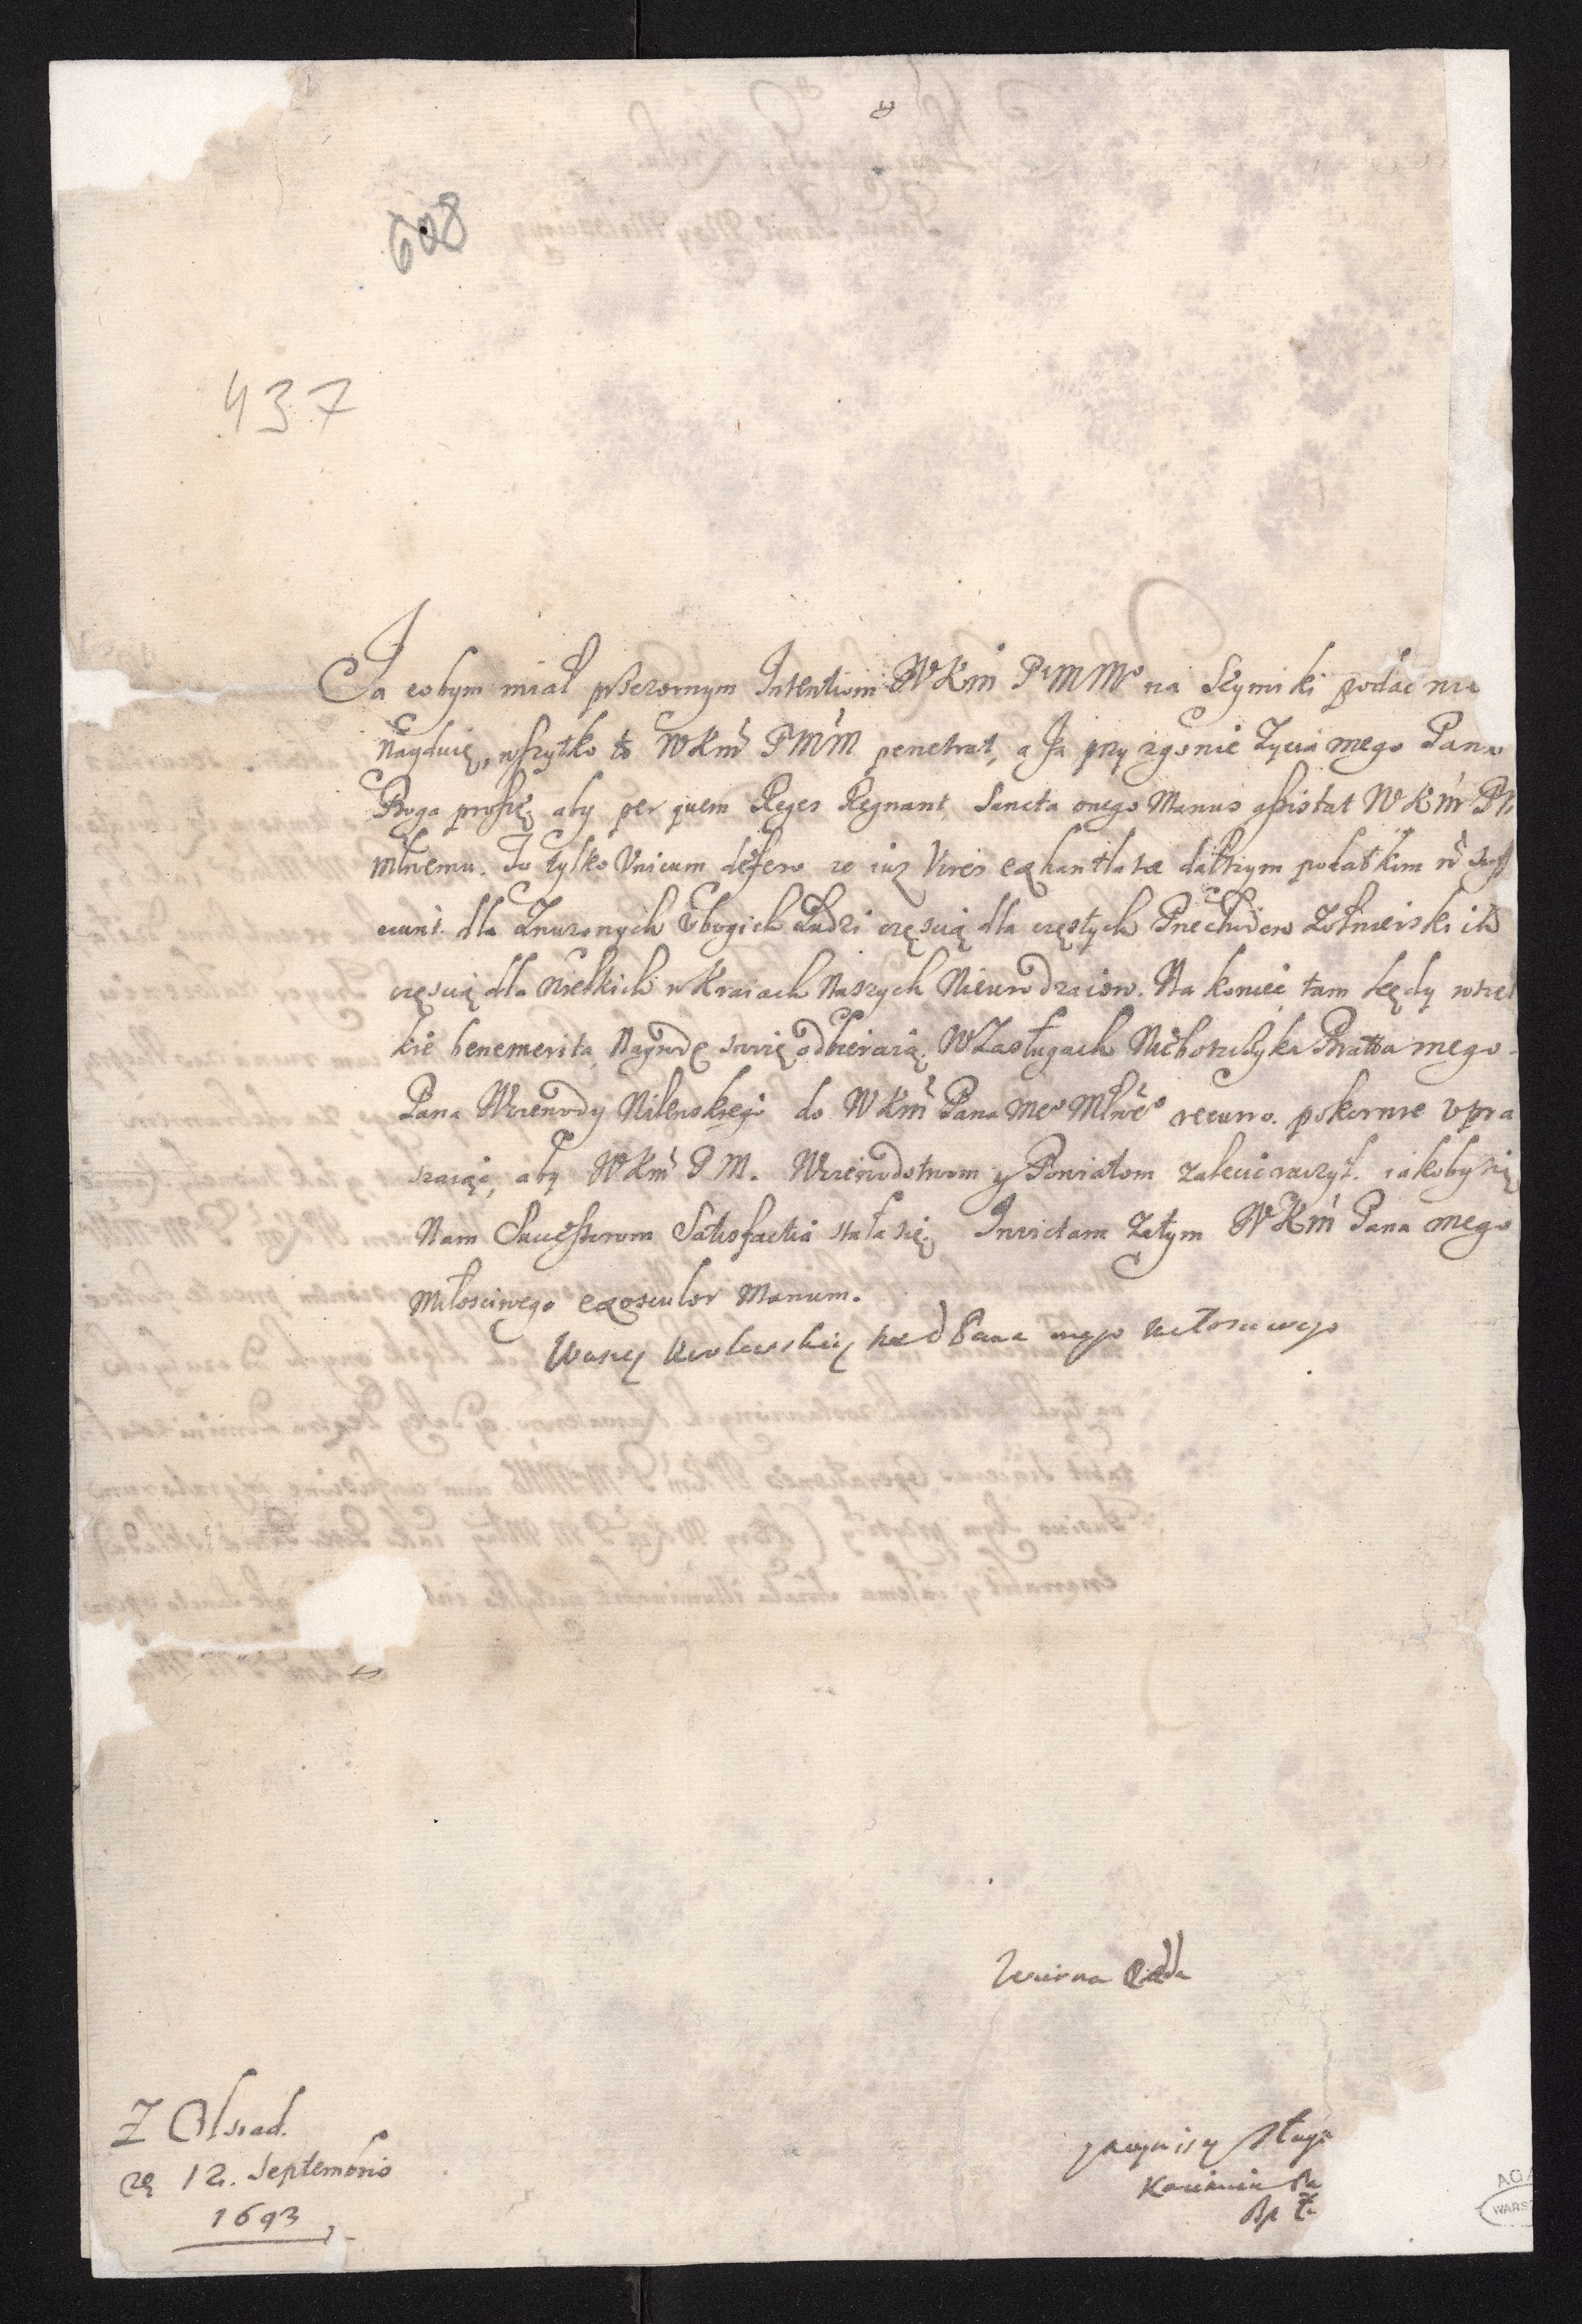 608
437
Ja cobym miał przezornym Intentiom WKm PMM na Seymiki podac nie
Nayduię, wszytko to WKm PMM penetrat, a Ja przy zgonie Zycia mego Pana
Boga proszę, aby per quem Reges Regnant, Sancta onego Manus assistat WKm P
Młnemu. To tylko Unicum defero ze iuz Vires exhantlatae dalszym podatkom
dla Znuzonych Ubogich Ludzi częscią dla częstych Przechodow Zołnierskich
częscią dla wielkich w Kraiach Naszych Nieurodzaiow. Na koniec tam kędy wszel
kie benemerita Nagrodę swoię odbieraią, W Zasługach Nieboszczyka Bratta mego
Pana Woiewody Wilenskiego do WKm Pana Mego Młwego recurro. pokornie upra
szaiąc, aby WKm P M. Woiewodstwom y Powiatom zalecic raczył. iakoby się
Nam Successorom Satisfactia stała się. Invictam Zatym WKm Pana mego
Miłosciwego exosculor Manum.
Waszey Krolewskiey Pana mego Miłosciwego
Wierna Rada
Z Olsiad.
12. Septembris
1693
naynizszy Sługa
Kazimierz Pa
Bp
AGA
WARS